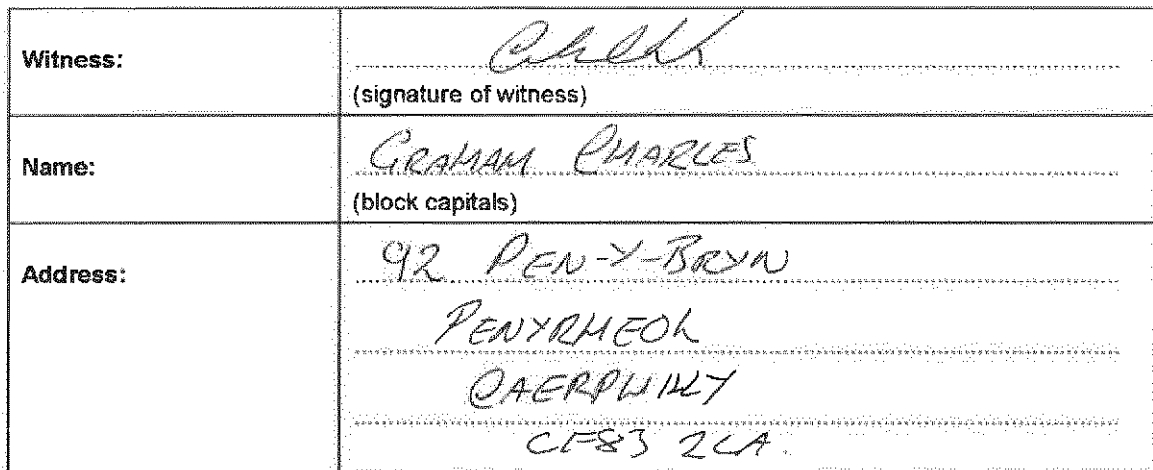 Witness:
(signature of witness)
Name: GRAHAM CHARLES
(block capitals)
Address: 92 PEN-Y-BRYN
PENYRHEOL
CAERPHILLY
CF83 2LA.